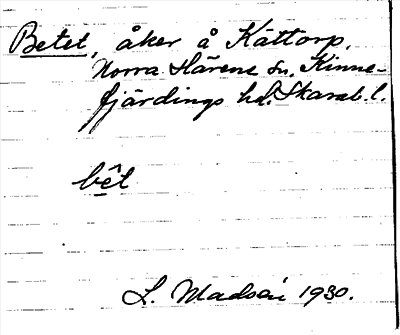 Betet, åker å Kättorp,
Norra Härene sn. Kinne-
fjärdings hd. Skarab. l.
bêt
L. Madsén 1930.